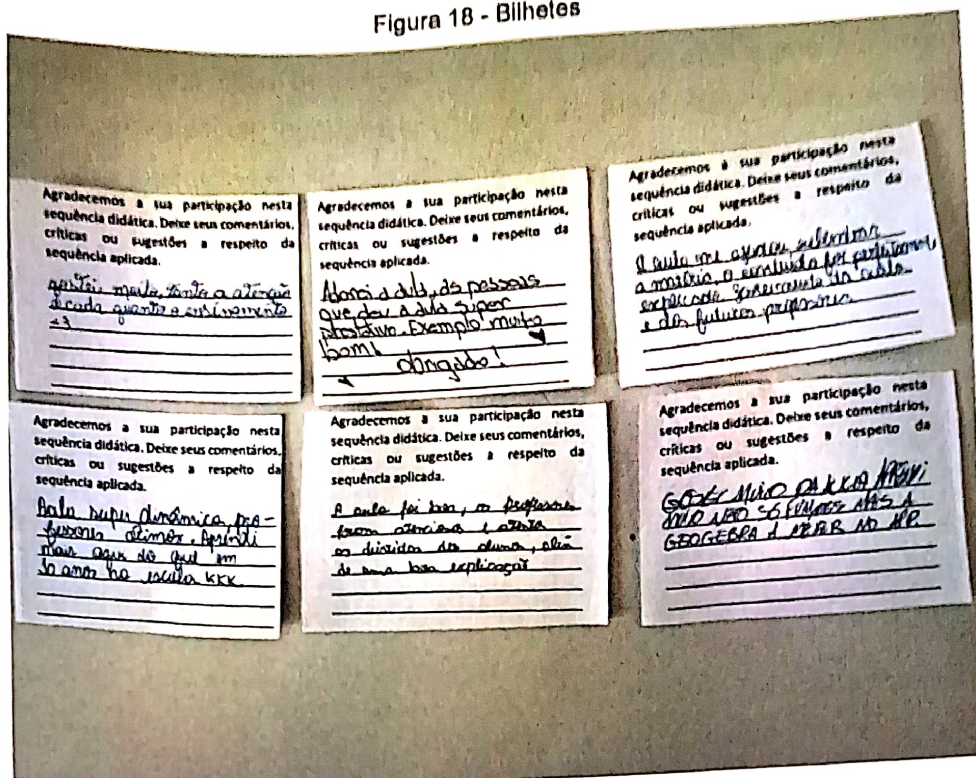 Figura 18 - Bilhetes
Agradecemos a sua participação nesta
sequência didática. Deixe seus comentários,
críticas ou sugestões a respeito da
sequência aplicada.
gostei muito, tanto a atenção
dcada quanto o ensinamento
<3
Agradecemos a sua participação nesta
sequência didática. Deixe seus comentários,
críticas ou sugestões a respeito da
sequência aplicada.
Adorei a aula, as pessoas
que deu a aula super
prestativa. Exemplo muito
bom!
obrigado!
Agradecemos à sua participação nesta
sequência didática. Deixe seus comentários,
críticas ou sugestões a respeito da
sequência aplicada.
A aula me ajudou relembrar
a matéria, o conteúdo foi perfeitamente
explicado da aula
e dos futuros professores
Agradecemos a sua participação nesta
sequência didática. Deixe seus comentários,
críticas ou sugestões a respeito da
sequência aplicada.
Aula super dinâmica, pro-
fessores ótimos. Aprendi
mais aqui do que em
10 anos na escola KKK
Agradecemos a sua participação nesta
sequência didática. Deixe seus comentários,
críticas ou sugestões a respeito da
sequência aplicada.
A aula foi boa, os professores
foram atenciosos e
as dúvidas dos alunos, além
de uma boa explicação
Agradecemos a sua participação nesta
sequência didática. Deixe seus comentários,
críticas ou sugestões a respeito da
sequência aplicada.
GOSTEI MUITO DA
NÃO SÓ MAS A
GEOGEBRA A NO APP